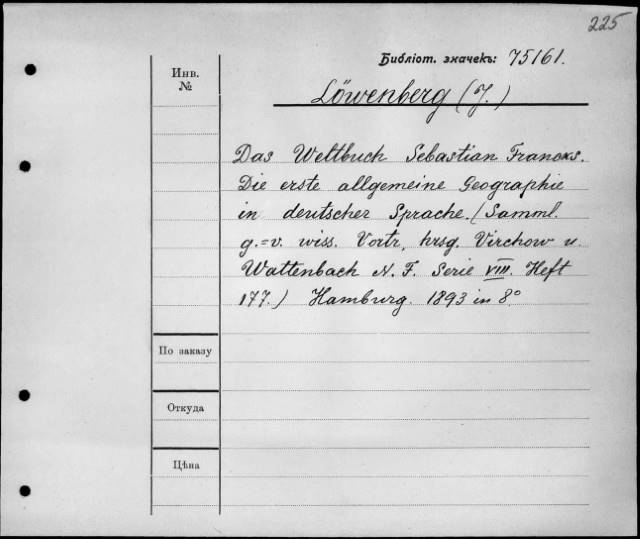 225
Библіот. значекъ: 75161.
Инв.
№
Löwenberg (J.)
Das Weltbuch Sebastian Francks.
Die erste allgemeine Geographie
in deutscher Sprache. (Samml.
g.=v. wiss. Vortr., hrsg. Virchow u.
Wattenbach N. F. Serie VIII. Heft
177.) Hamburg. 1893 in 8°
По заказу
Откуда
Цѣна